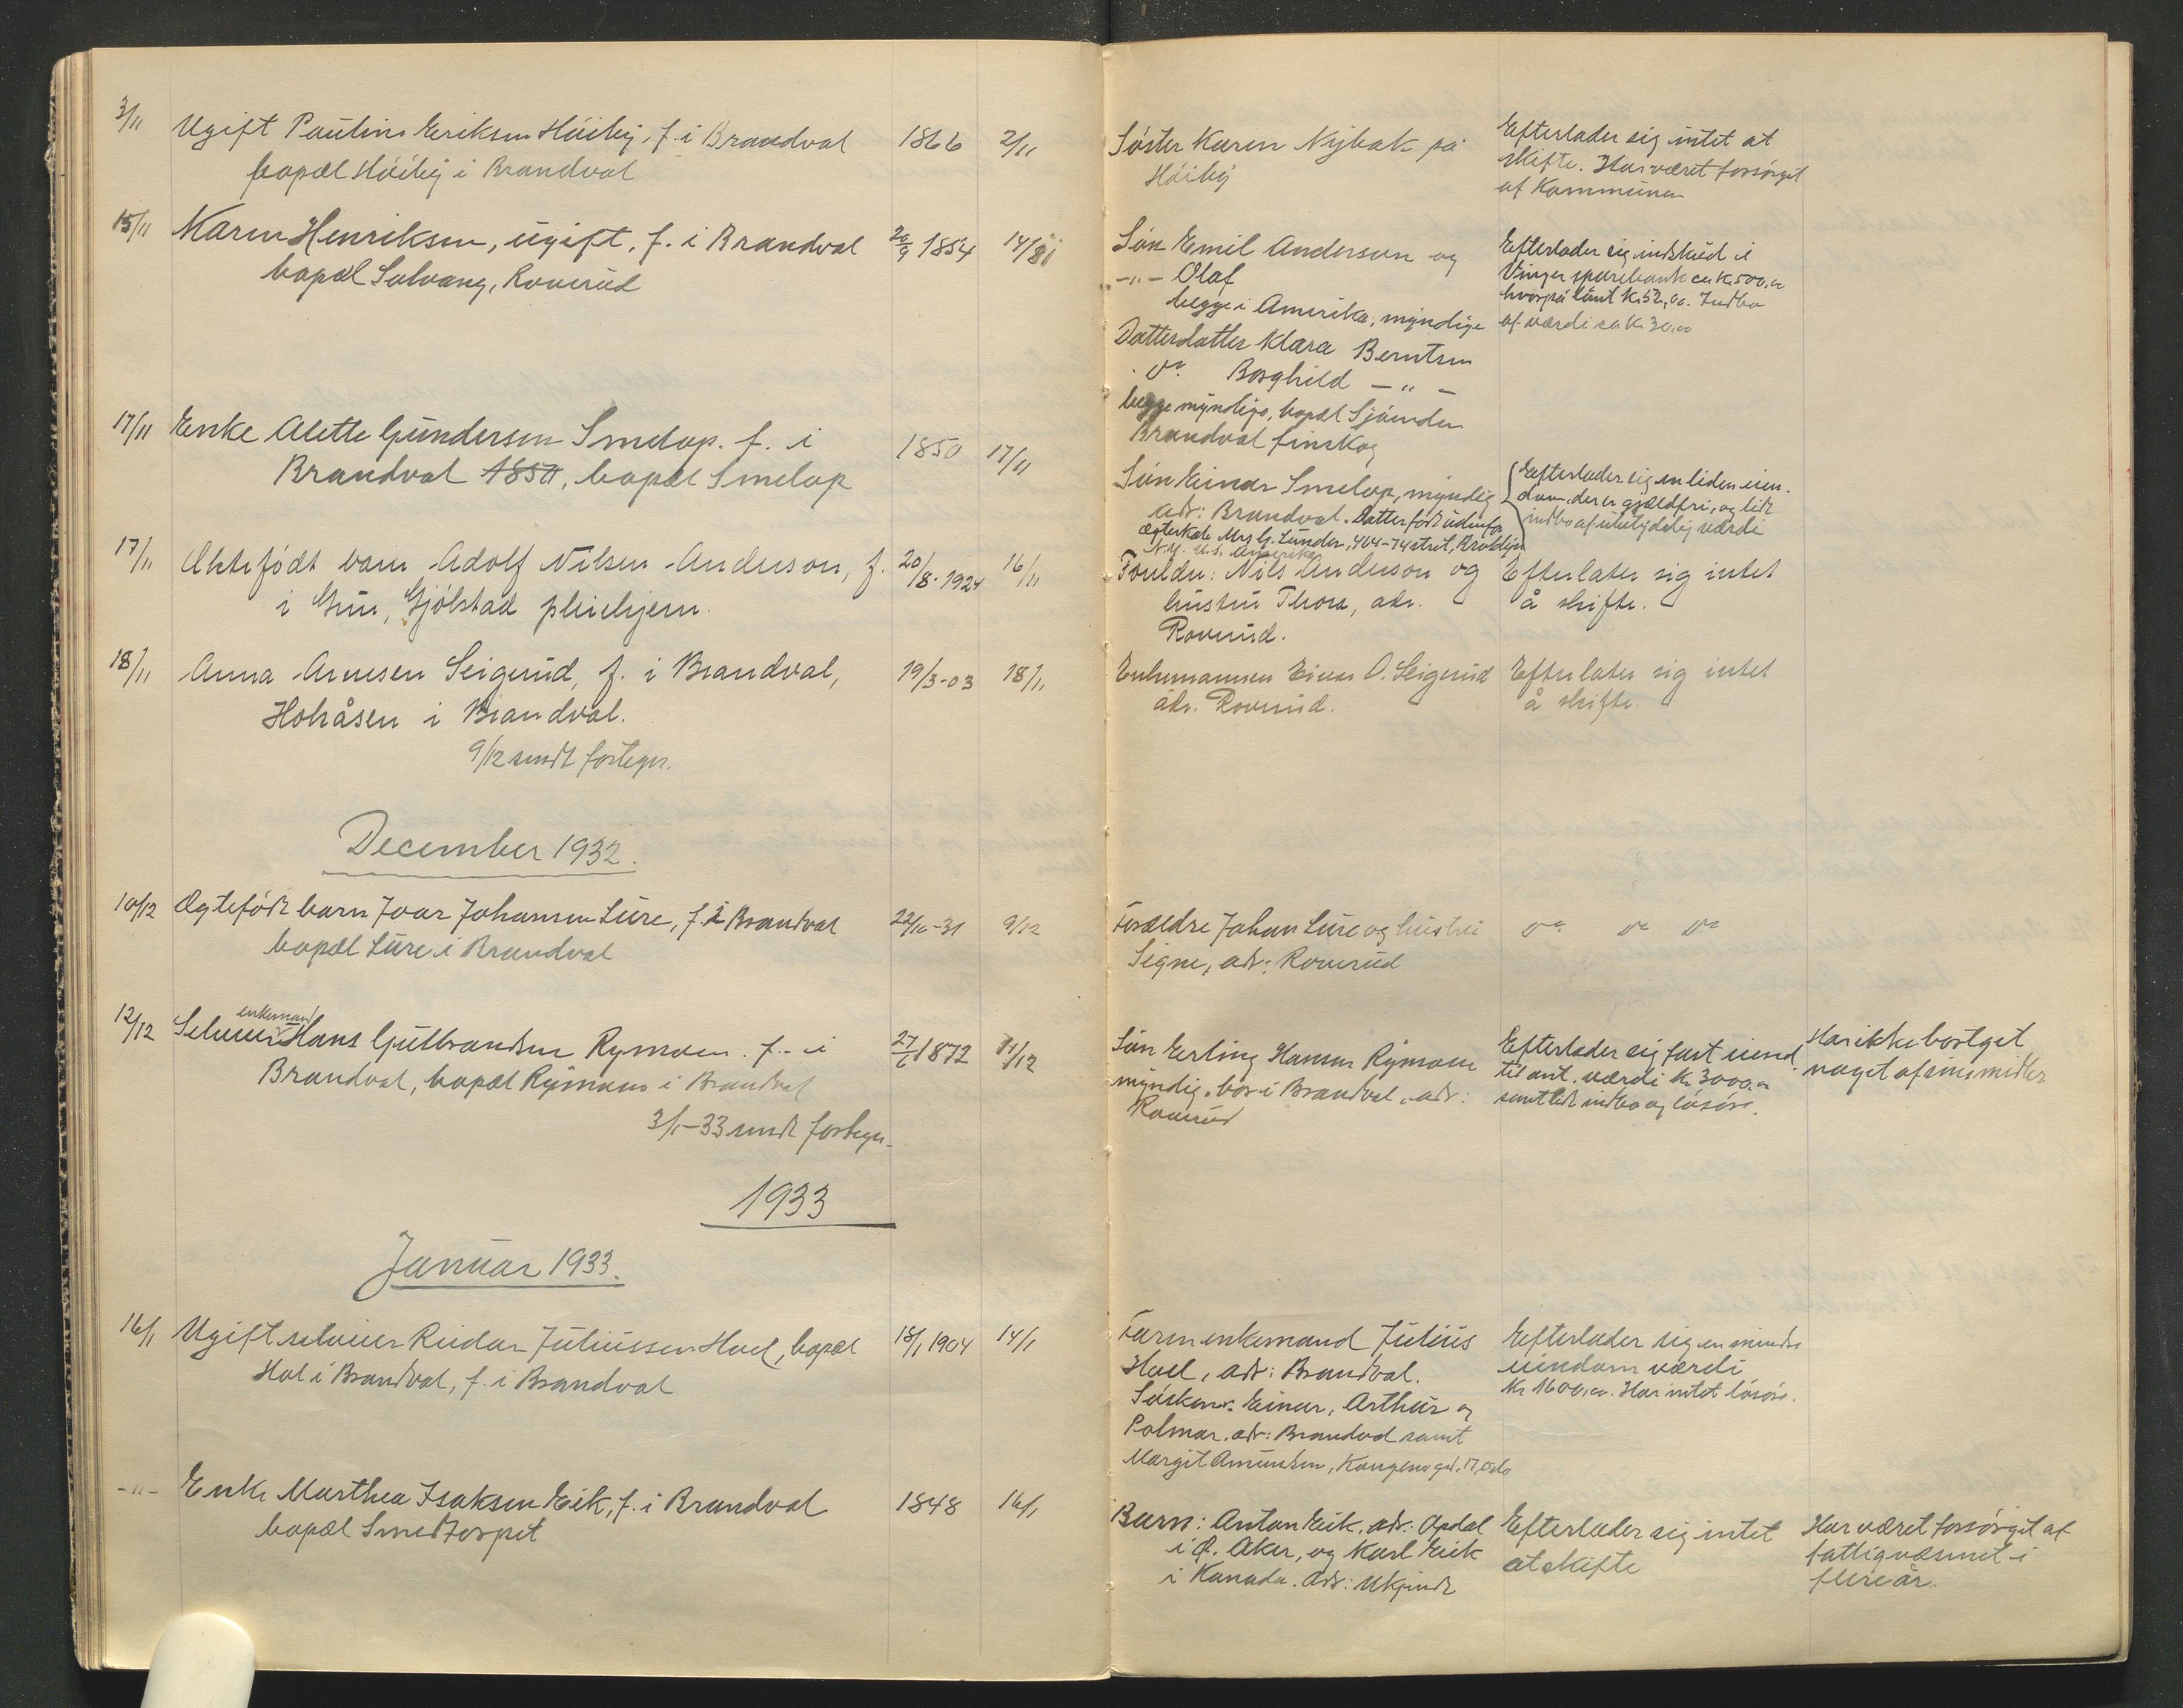 3/11 Ugift Pauline Eriksen Höiby, f. i Brandval 1866 2/11
bopæl Höiby i Brandval
Söster Karen Nybak på
Höiby
Efterlader sig intet at
skifte. Har været forsörget
af Kommunen
15/11 Karen Henriksen, ugift, f. i Brandval 20/9 1854 14/11
bopæl Solvang, Roverud
Sön Emil Anderson og
-"- Olaf
begge i Amerika, myndige
Datterdatter Klara Berntsen
do Borghild -"-
begge myndige, bopæl Sjöenden
Brandval finskog
Efterlader sig indskud i
Vinger sparebank ca K. 500,00
hvorpå lånt K. 52,00. Indbo
af værdi ca K. 30,00
17/11 Enke Alette Gundersen Smelop. f. i 1850 17/11
Brandval 1850, bopæl Smelop
Sön Einar Smelop, myndig
adr: Brandval. Datter födt udenfor
ægteskab Mrs G. Lunder, 464-74 stret, Broklyn
N.Y. U.S. Amerika
Efterlader sig en liden eien-
dom, der er gjældfri, og lidt
indbo af ubetydelig værdi
17/11 Ektefödt barn Adolf Nilsen Anderson, f. 20/8-1924 16/11
i Grue, Gjölstad pleiehjem.
Foreldre: Nils Anderson og
hustru Thora, adr.
Roverud.
Efterlater sig intet
å skifte.
18/11 Anna Arnesen Seigerud, f. i Brandval, 19/3-03 18/11
Hokåsen i Brandval.
9/12 sendt fortegn.
Enkemannen Einar O. Seigerud
adr. Roverud.
Efterlater sig intet
å skifte.
December 1932.
10/12 Ægtefödt barn Ivar Johansen Lure, f. i Brandval 22/10-31 9/12
bopæl Lure i Brandval
Forældre Johan Lure og hustru
Signe, adr: Roverud
do do do
12/12 Selveier enkemand Hans Gulbrandsen Rymoen. f. i 27/6 1872 11/12
Brandval, bopæl Rymoen i Brandval
3/1-33 sendt fortegn.
Sön Erling Hansen Rymoen
myndig. bor i Brandval, adr:
Roverud
Efterlader sig fast eiend.
til ant. værdi K. 3000,00
samt lidt indbo og lösöre.
Har ikke bortget
noget af sine midler
1933
Januar 1933.
16/1 Ugift selveier Reidar Juliussen Hoel, bopæl 18/1 1904 14/1
Hol i Brandval, f. i Brandval
Farm enkemand Julius
Hoel, adr: Brandval.
Söskende: Einar, Arthur og
Palmar, adr: Brandval samt
Margit Amundsen, Kongens gd. 17, Oslo
Efterlader sig en mindre
eiendom værdi
Kr 1600,00. Har intet lösöre.
-"- Enke Marthea Isaksen Eik, f. i Brandval 1848 16/1
bopæl Smedtorpet
Barn: Anton Eik, adr: Opdal
i Ø. Aker, og Karl Eik
i Kanada. Adr: Ukjendt
Efterlader sig intet
at skifte
Har været forsörget af
fattigvæsenet i
flere år.